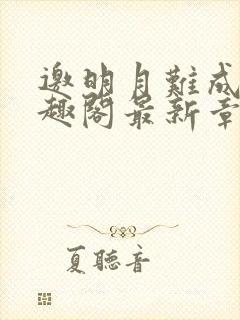 邀明月難成
趣閣最新章
夏聽音